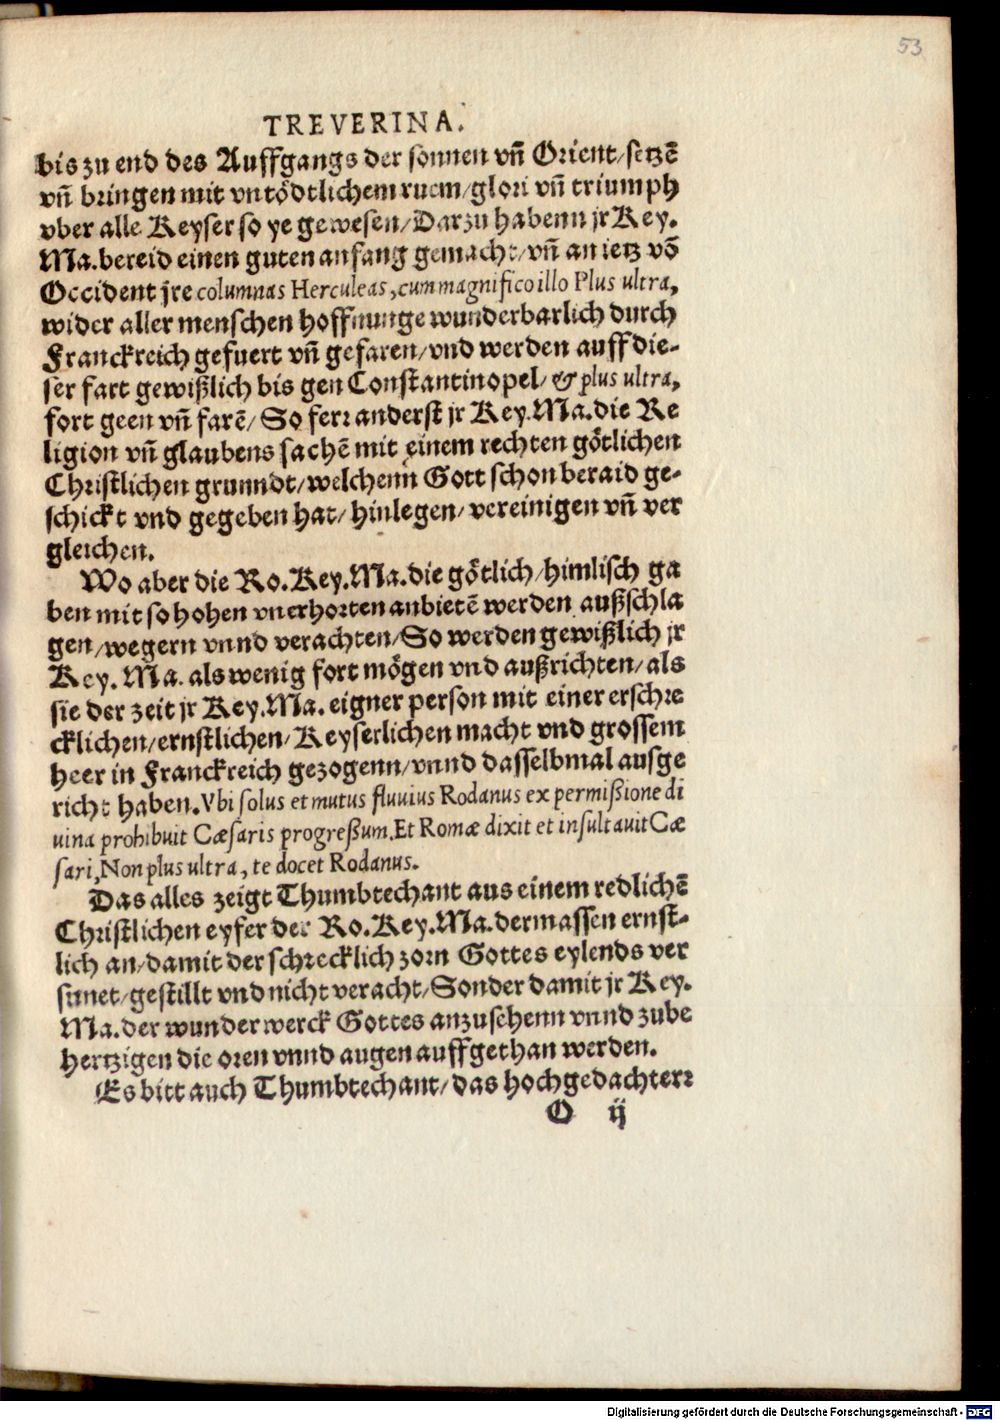 53
TREVERINA.
bis zu end des Auffgangs der sonnen vn̄ Orient/setzē
vn̄ bringen mit vntödtlichem ruem/glori vn̄ triumph
vber alle Keyser so ye gewesen/Darzu habenn jr Key.
Ma.bereid einen guten anfang gemacht/vn̄ an ietz vō
Occident jre columnas Herculeas,cum magnifico illo Plus ultra,
wider aller menschen hoffnunge wunderbarlich durch
Franckreich gefuert vn̄ gefaren/vnd werden auff die-
ser fart gewißlich bis gen Constantinopel/& plus ultra,
fort geen vn̄ farē/So ferr anderst jr Key.Ma.die Re
ligion vn̄ glaubens sachē mit einem rechten götlichen
Christlichen grunndt/welchenn Gott schon beraid ge-
schickt vnd gegeben hat/hinlegen/vereinigen vn̄ ver
gleichen.
Wo aber die Ro.Key.Ma.die götlich/himlisch ga
ben mit so hohen vnerhorten anbietē werden außschla
gen/wegern vnnd verachten/So werden gewißlich jr
Key. Ma. als wenig fort mögen vnd außrichten/als
sie der zeit jr Key.Ma. eigner person mit einer erschre
cklichen/ernstlichen/Keyserlichen macht vnd grossem
heer in Franckreich gezogenn/vnnd dasselbmal ausge
richt haben.Vbi solus et mutus fluvius Rodanus ex permißione di
uina prohibuit Cæsaris progreßum.Et Romæ dixit et insultauit Cæ
sari,Non plus ultra, te docet Rodanus.
Das alles zeigt Thumbtechant aus einem redlichē
Christlichen eyfer der Ro.Key.Ma.dermassen ernst-
lich an/damit der schrecklich zorn Gottes eylends ver
sunet/gestillt vnd nicht veracht/Sonder damit jr Key.
Ma.der wunderwerck Gottes anzusehenn vnnd zube
hertzigen die oren vnnd augen auffgethan werden.
Es bitt auch Thumbtechant/das hochgedachterr
O ij
Digitalisierung gefördert durch die Deutsche Forschungsgemeinschaft - DFG